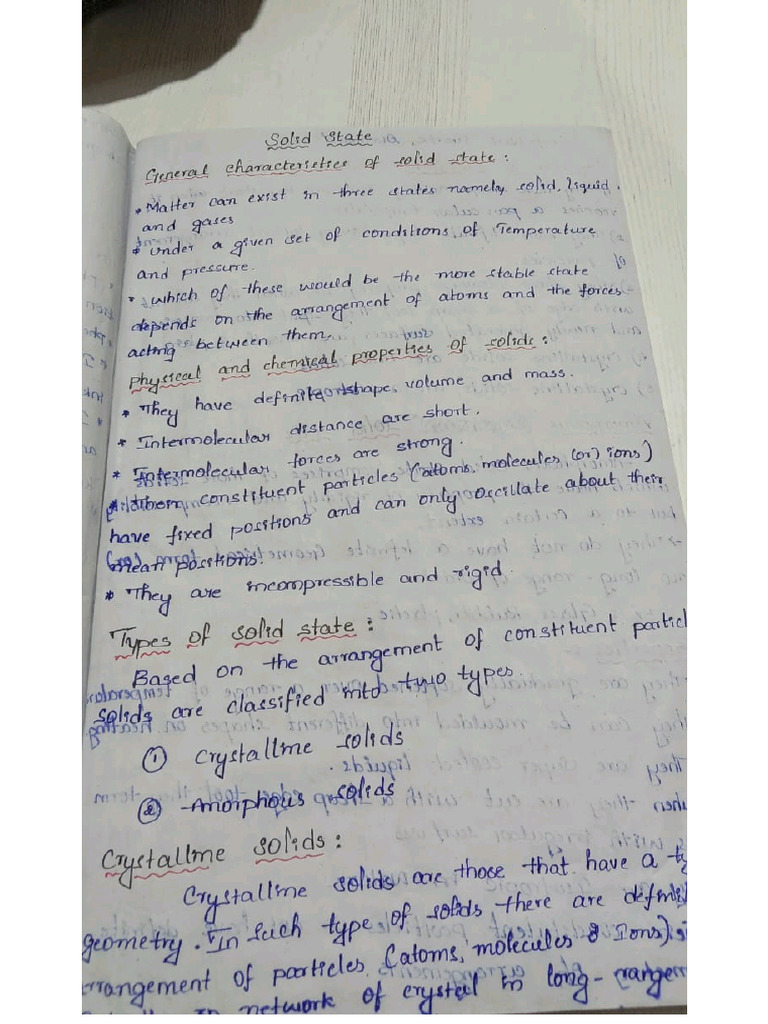 Solid State
General characteristics of solid state :
* Matter can exist in three states namely solid, liquid
and gases
* Under a given set of conditions of Temperature
and pressure.
* which of these would be the more stable state
depends on the arrangement of atoms and the forces
acting between them.
Physical and chemical properties of solids :
* They have definite shape, volume and mass.
* Intermolecular distance are short.
* Intermolecular forces are strong.
* constituent particles (atoms, molecules (or) ions)
have fixed positions and can only oscillate about their
mean positions.
* They are incompressible and rigid.
Types of solid state :
Based on the arrangement of constituent particl
solids are classified into two types.
① Crystallme solids
② Amorphous solids
Crystallme solids :
Crystallme solids are those that have a ty
geometry. In such type of solids there are defini
rrangement of particles (atoms, molecules & Ions)
network of crystal in long-range